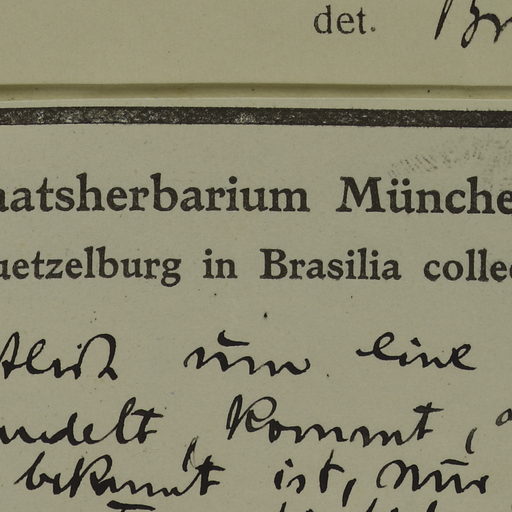 det. Br
aatsherbarium Münche
uetzelburg in Brasilia collec
um eine
ndelt, kommt,
bekannt ist, nur